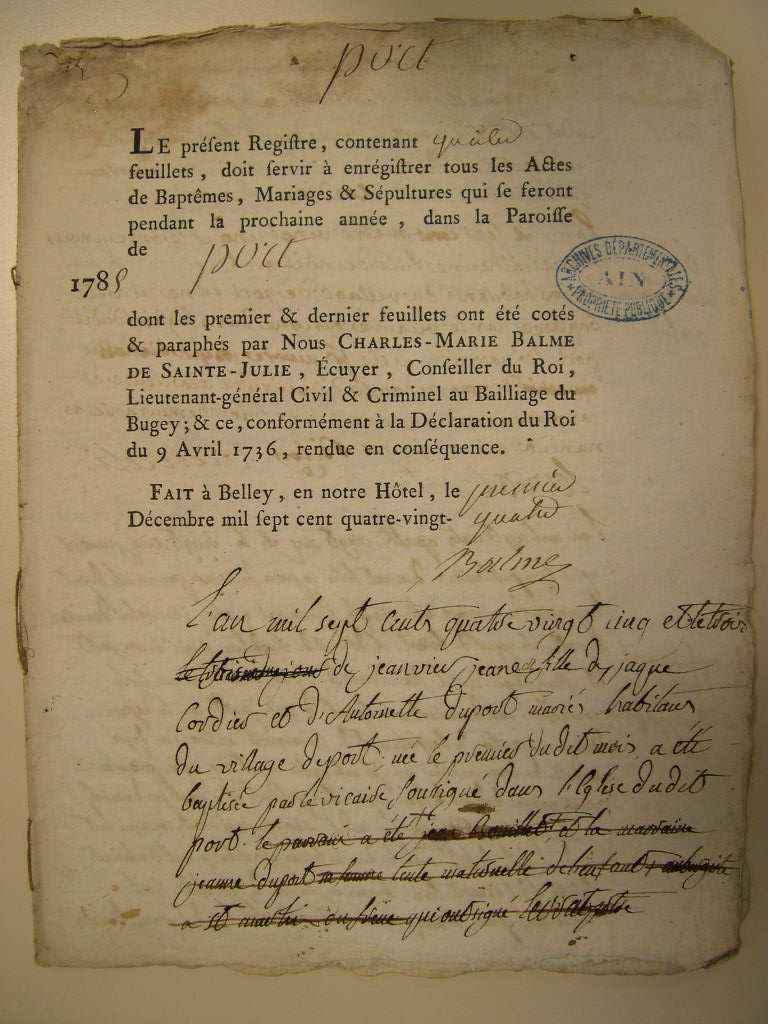 port
LE préſent Regiſtre, contenant quatre
feuillets, doit ſervir à enrégiſtrer tous les Actes
de Baptêmes, Mariages & Sépultures qui ſe feront
pendant la prochaine année, dans la Paroiſſe
de port
1785
ARCHIVES DÉPARTEMENTALES
AIN
PROPRIÉTÉ PUBLIQUE
dont les premier & dernier feuillets ont été cotés
& paraphés par Nous CHARLES-MARIE BALME
DE SAINTE-JULIE, Écuyer, Conſeiller du Roi,
Lieutenant-général Civil & Criminel au Bailliage du
Bugey; & ce, conformément à la Déclaration du Roi
du 9 Avril 1736, rendue en conſéquence.
FAIT à Belley, en notre Hôtel, le premier
Décembre mil ſept cent quatre-vingt- quatre
Balme
L'an mil sept cents quatre vingt cinq et le trois
de janvier jeanne fille de jaque
Cordier et d'Antoinette duport mariés habitans
du village de port, née le premier dudit mois a été
baptisée par le vicaire soussigné dans l'Eglise dudit
port. le parrain a été et la marraine
jeanne duport tante maternelle de l'enfant
qui ont signé